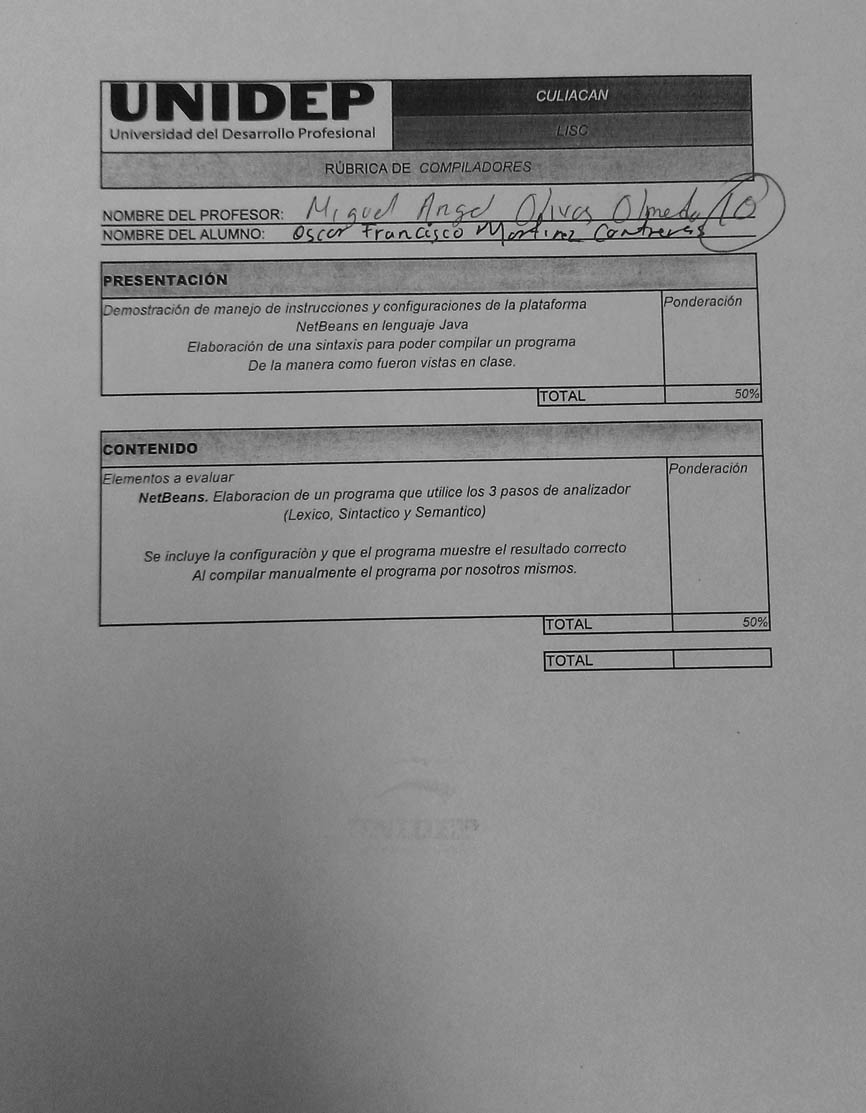 UNIDEP
Universidad del Desarrollo Profesional
CULIACAN
LISC
RÚBRICA DE COMPILADORES
NOMBRE DEL PROFESOR: Miguel Angel Olivas Olmeda 10
NOMBRE DEL ALUMNO: Oscar Francisco Martinez Contreras
PRESENTACIÓN
Demostración de manejo de instrucciones y configuraciones de la plataforma
NetBeans en lenguaje Java
Elaboración de una sintaxis para poder compilar un programa
De la manera como fueron vistas en clase.
Ponderación
TOTAL 50%
CONTENIDO
Elementos a evaluar
NetBeans. Elaboracion de un programa que utilice los 3 pasos de analizador
(Lexico, Sintactico y Semantico)
Se incluye la configuraciòn y que el programa muestre el resultado correcto
Al compilar manualmente el programa por nosotros mismos.
Ponderación
TOTAL 50%
TOTAL
UNIDEP